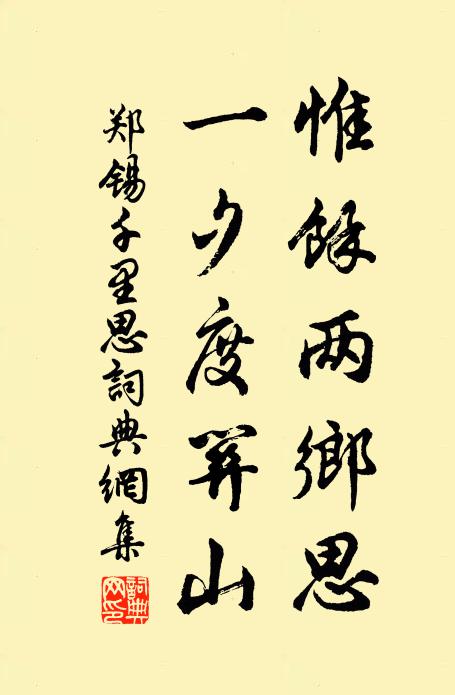 惟餘两鄉思
一夕度關山
郑锡千里思詞典網集
詞典网印